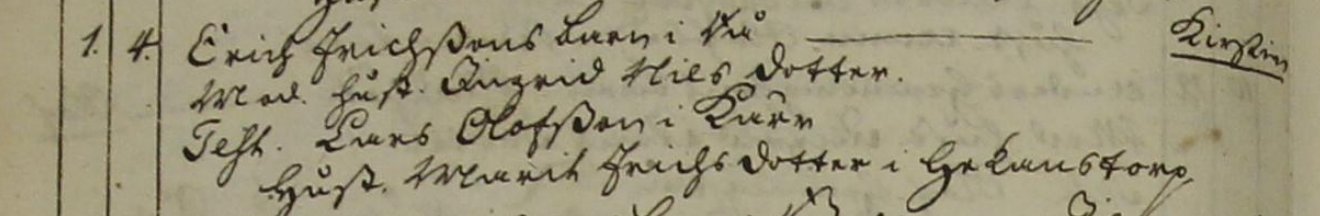 1. 4. Erich Jrichßons barn i Åu Kirstin
Mod. Hust. Jngrid Nils dotter.
Test. Lars Olofßon i Kärr
Hust. Marit Jrichs dotter i Hekanstorp